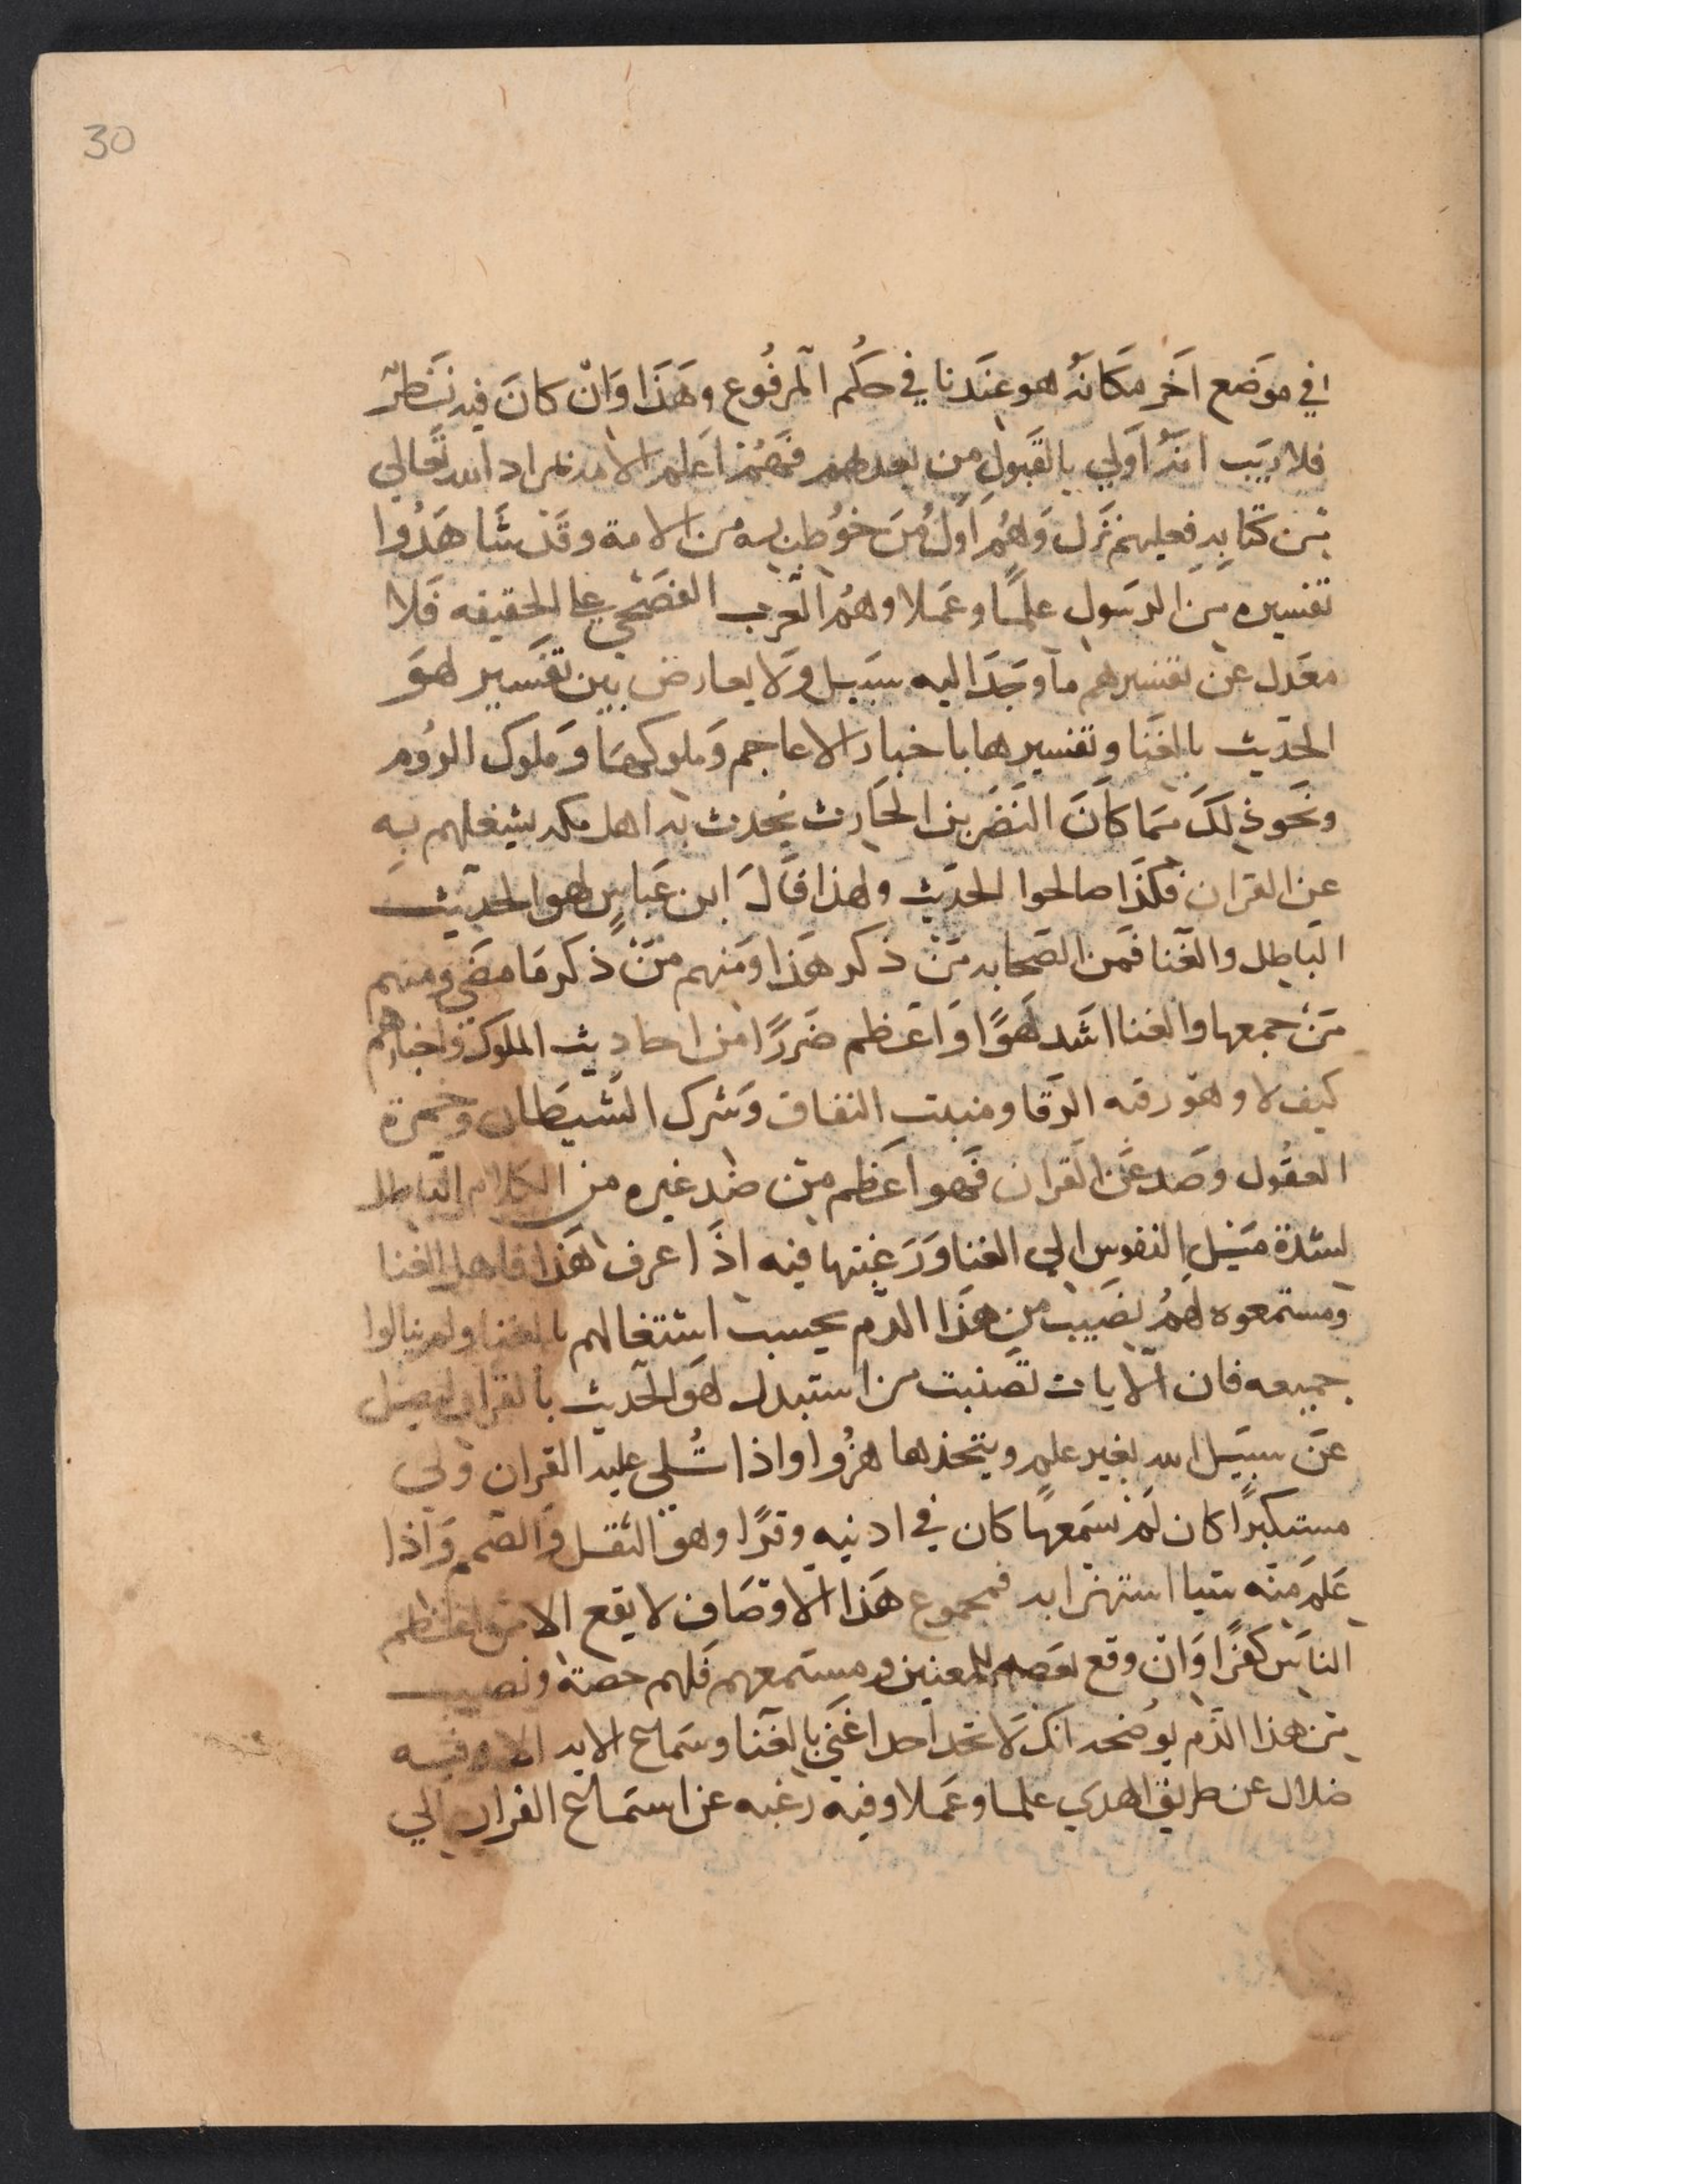 30
في موضع اخر مكانه هو عندنا في حكم المرفوع وهذا وان كان فيه نظر
فلا ريب انه اولي بالقبول من بعدهم فهم اعلم الامه بمراد الله تعالي
من كتابه فعليهم نزل وهم اول من خوطب به من الامة وقد شاهدوا
تفسيره من الرسول علما وعملا وهم العرب الفصحي علي الحقيقه فلا
معدل عن تفسيرهم ما وجد اليه سبيل ولا يعارض بين تفسير لهو
الحديث بالغنا وتفسيرها باخبار الاعاجم وملوكها وملوك الروم
ونحو ذلك مما كان النضر بن الحارث يحدث به اهل مكه يشغلهم به
عن القران فكذا الحديث ولهذا قال ابن عباس لهو الحديث
الباطل والغنا فمن الصحابه من ذكر هذا ومنهم من ذكر ما مضي ومنهم
من جمعها والغنا اشد لهوا واعظم ضررا من احاديث الملوك واخبارهم
كيف لا وهو رقيه الزقا ومنبت النفاق وشرك الشيطان وخمرة
العقول وصد عن القران فهو اعظم من ضد غيره من الكلام الباطل
لشدة ميل النفوس الي الغنا ورغبتها فيه اذا عرف هذا فاهل الغنا
ومستمعوه لهم نصيب من هذا الذم بحسب اشتغالهم بالغنا ولم ينالوا
جميعه فان الايات تضنبت من استبدل لهو الحديث بالقران ليضل
عن سبيل الله بغير علم ويتخذها هزوا واذا تتلي عليه القران ولي
مستكبرا كان لم يسمعها كان في اذنيه وقرا وهو الثقل والصمم واذا
علم منه شيا استهزا به فمجموع هذا الاوصاف لا يقع الا من اعظم
الناس كفرا وان وقع بعضه للمغنين ومستمعهم فلهم حصة ونصيب
من هذا الذم يوضحه انك لا تجد احدا غني بالغنا وسماع الا به الا وفيه
ضلال عن طريق الهدي علما وعملا وفيه رغبه عن استماع القران الي